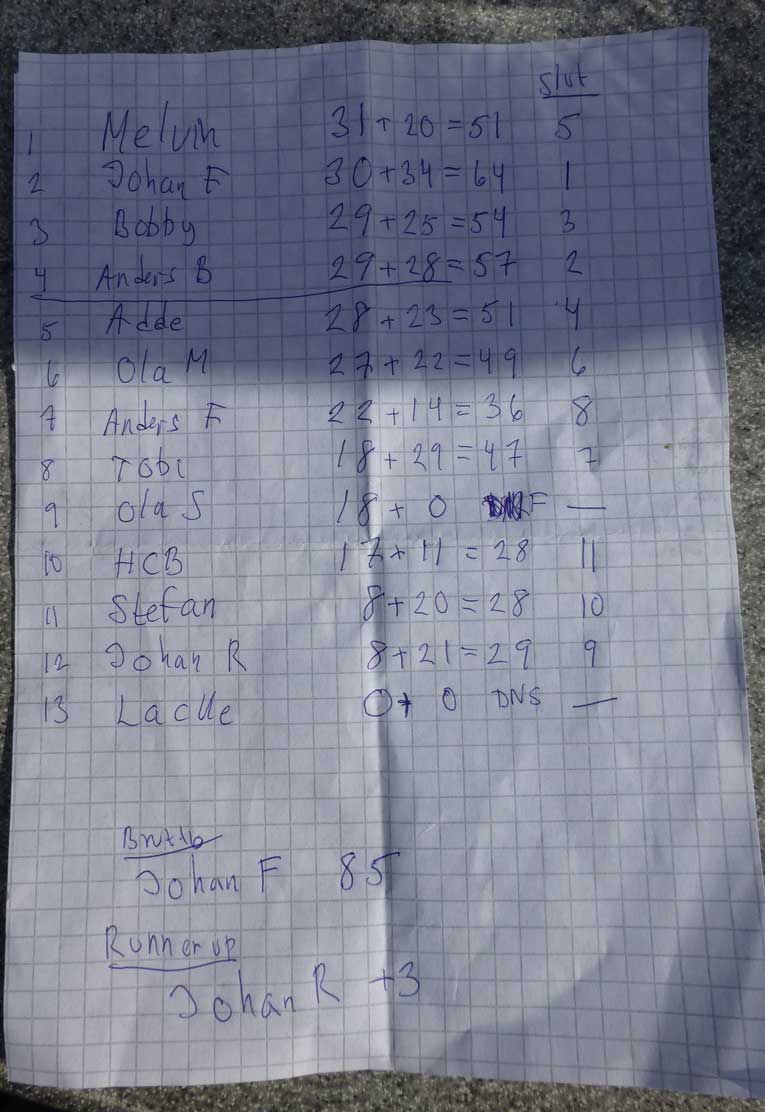 Slut
1 Melvin 31 + 20 = 51 5
2 Johan F 30 + 34 = 64 1
3 Bobby 29 + 25 = 54 3
4 Anders B 29 + 28 = 57 2
5 Adde 28 + 23 = 51 4
6 Ola M 27 + 22 = 49 6
7 Anders F 22 + 14 = 36 8
8 Tobi 18 + 29 = 47 7
9 Ola S 18 + 0 —
10 HCB 17 + 11 = 28 11
11 Stefan 8 + 20 = 28 10
12 Johan R 8 + 21 = 29 9
13 0 + 0 DNS —
Brutto
Johan F 85
Runner up
Johan R +3